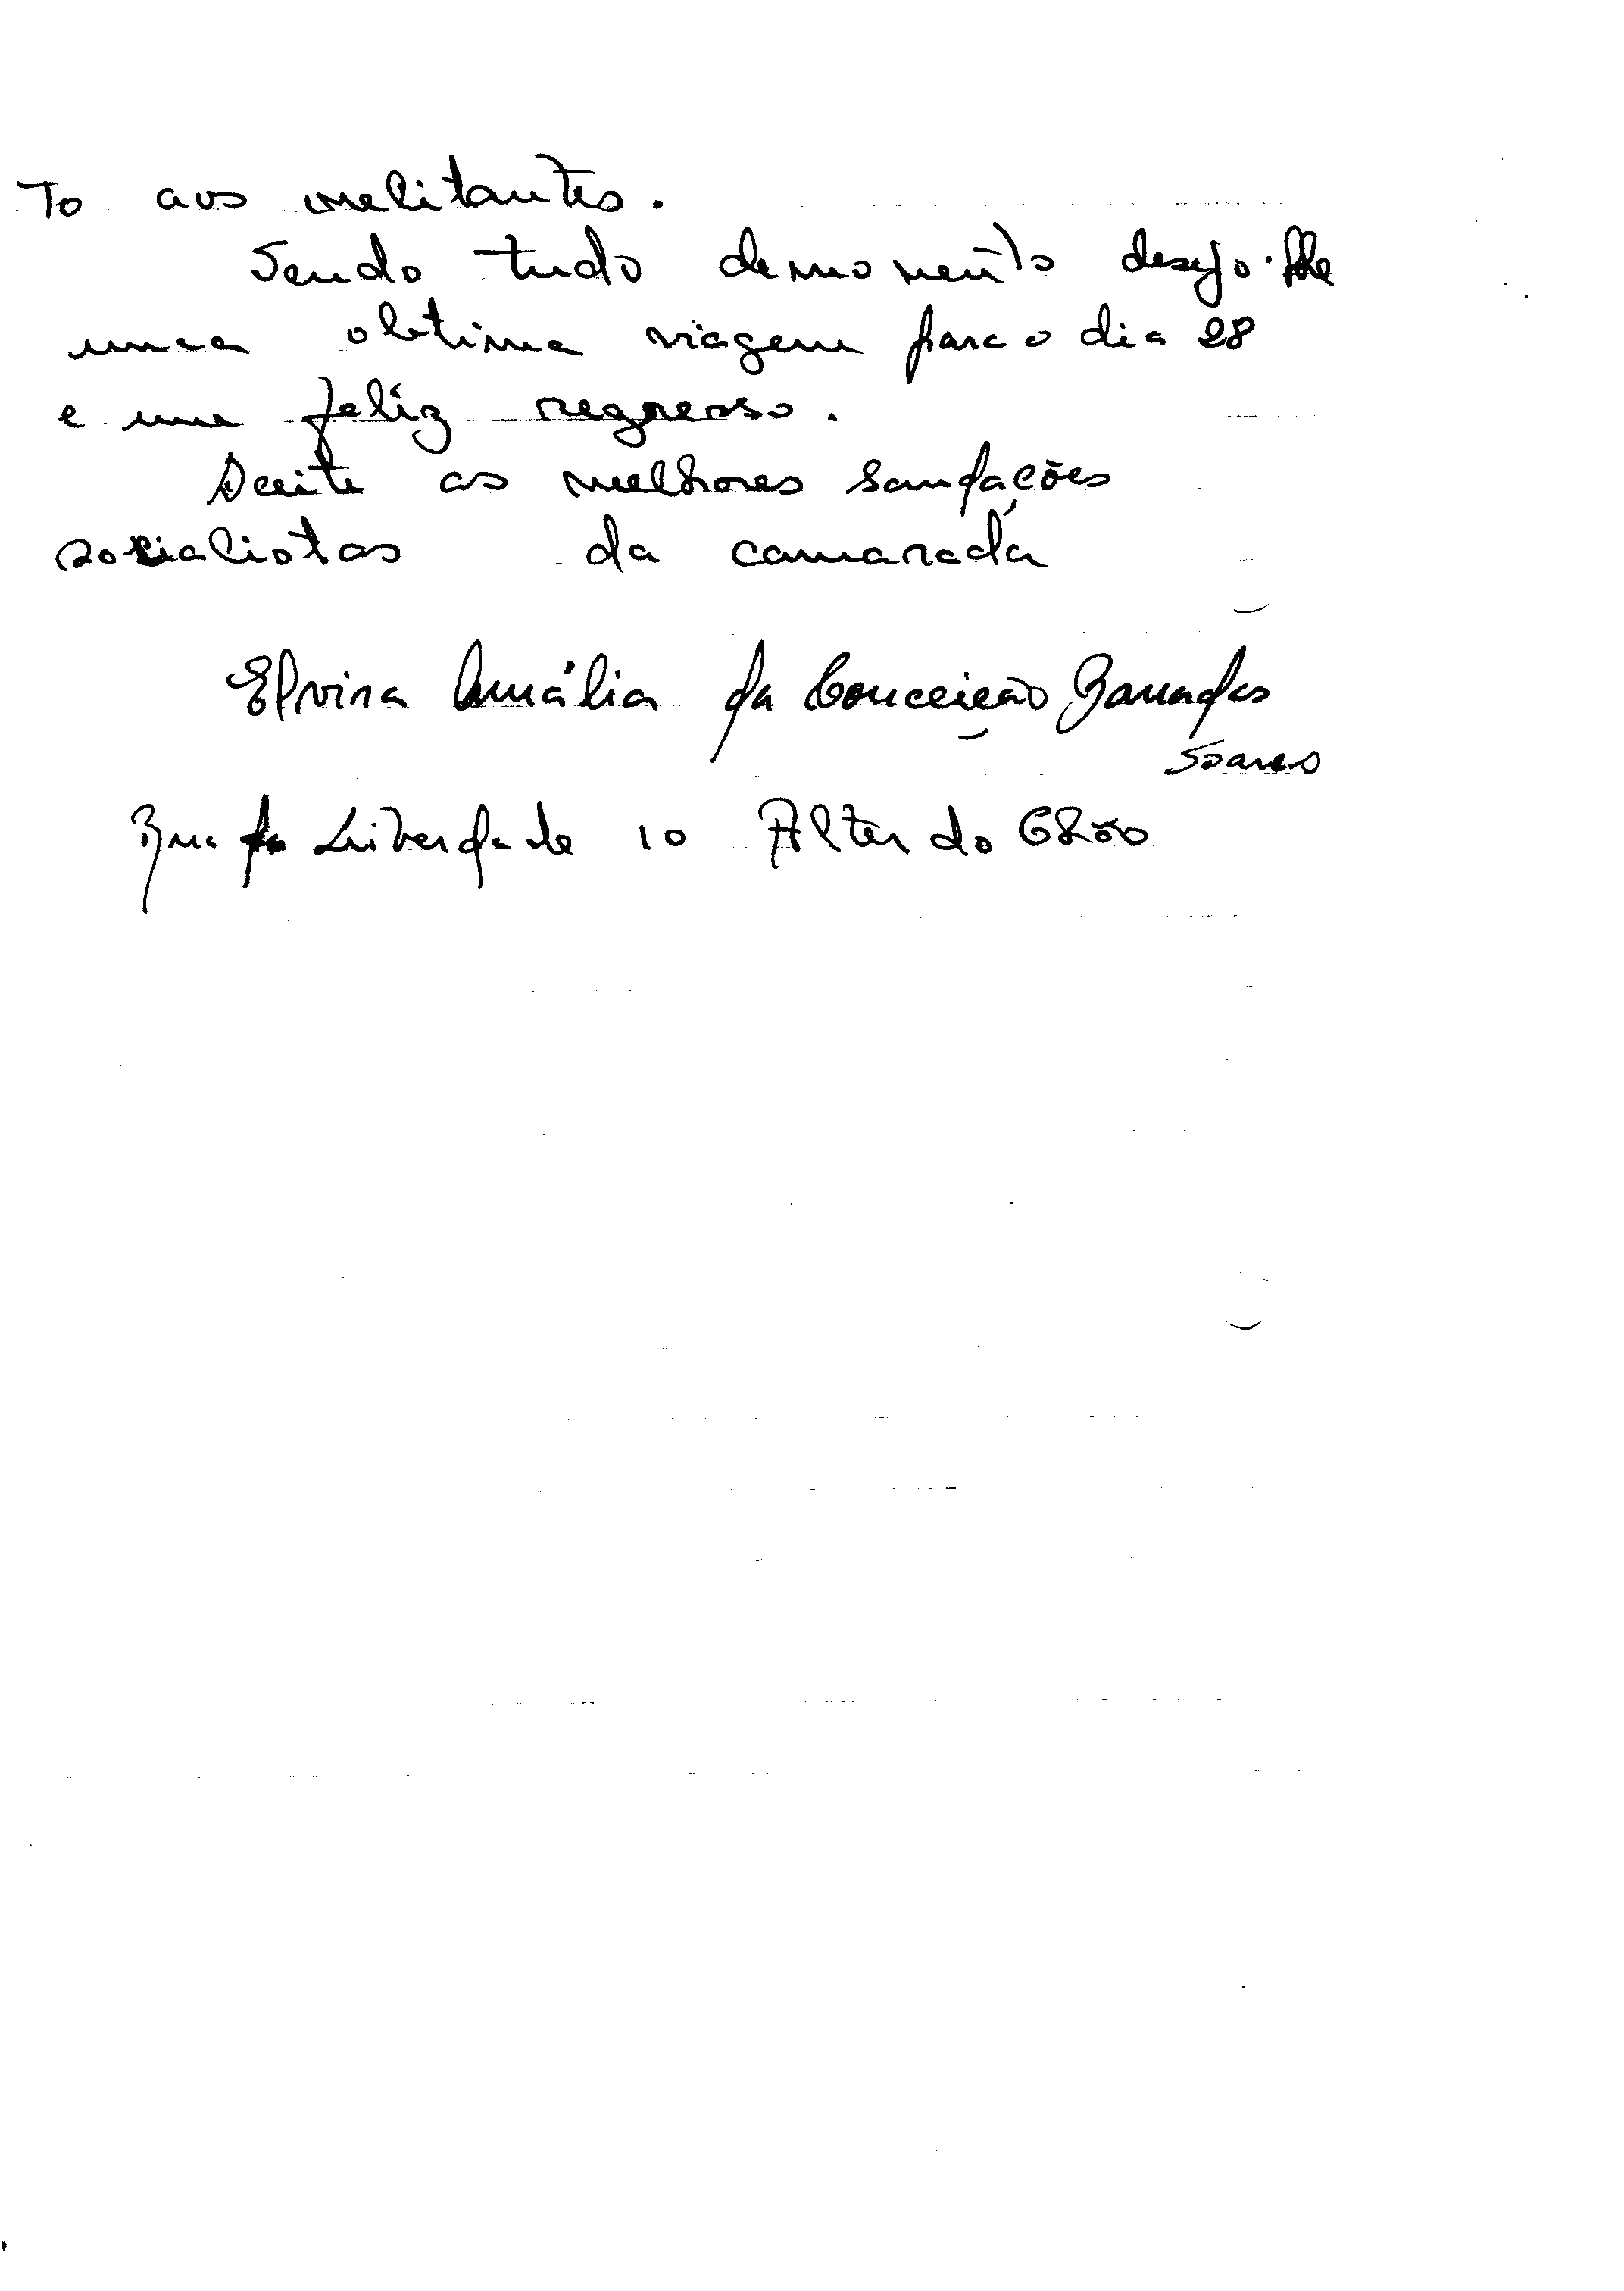 To aos melitantes.
Sendo tudo de momento desejo-lhe
uma obtima viagem para o dia 28
e uma feliz regresso.
Aceite as melhores saudações
socialistas da camarada
Elvira Amália da Conceição
Soares
Rua da Liberdade 10 Alter do Chão